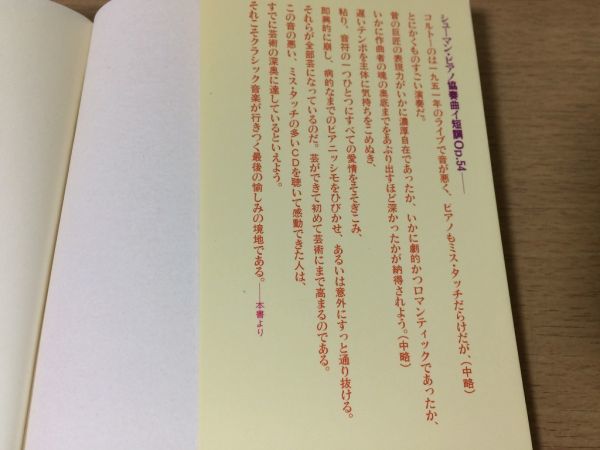 シューマン・ピアノ協奏曲イ短調Op.54――
コルトーのは一九五一年のライブで音が悪く、ピアノもミス・タッチだらけだが、（中略）
とにかくものすごい演奏だ。
昔の巨匠の表現力がいかに濃厚自在であったか、いかに劇的かつロマンティックであったか、
いかに作曲者の魂の奥底までをあぶり出すほど深かったかが納得されよう。（中略）
遅いテンポを主体に気持ちをこめぬき、
粘り、音符の一つひとつにすべての愛情をそそぎこみ、
即興的に崩し、病的なまでのピアニッシモをひびかせ、あるいは意外にすっと通り抜ける。
それらが全部芸になっているのだ。芸ができて初めて芸術にまで高まるのである。
この音の悪い、ミス・タッチの多いCDを聴いて感動できた人は、
すでに芸術の深奥に達しているといえよう。
それこそクラシック音楽が行きつく最後の愉しみの境地である。――本書より